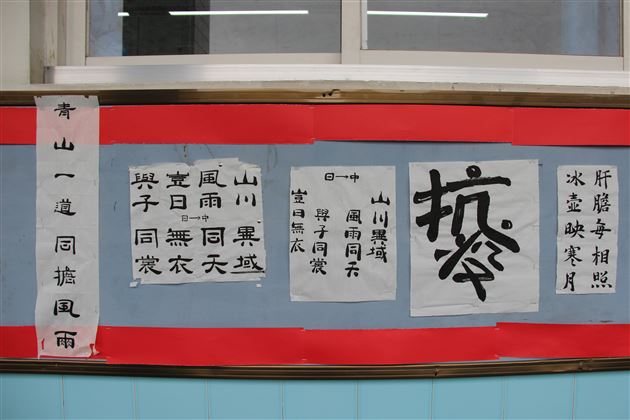 青山一道同擔風雨
山川異域
風雨同天
豈曰無衣
與子同裳
日→中
日→中
山川異域
風雨同天
與子同裳
豈曰無衣
抗
肝膽每相照
冰壺映寒月